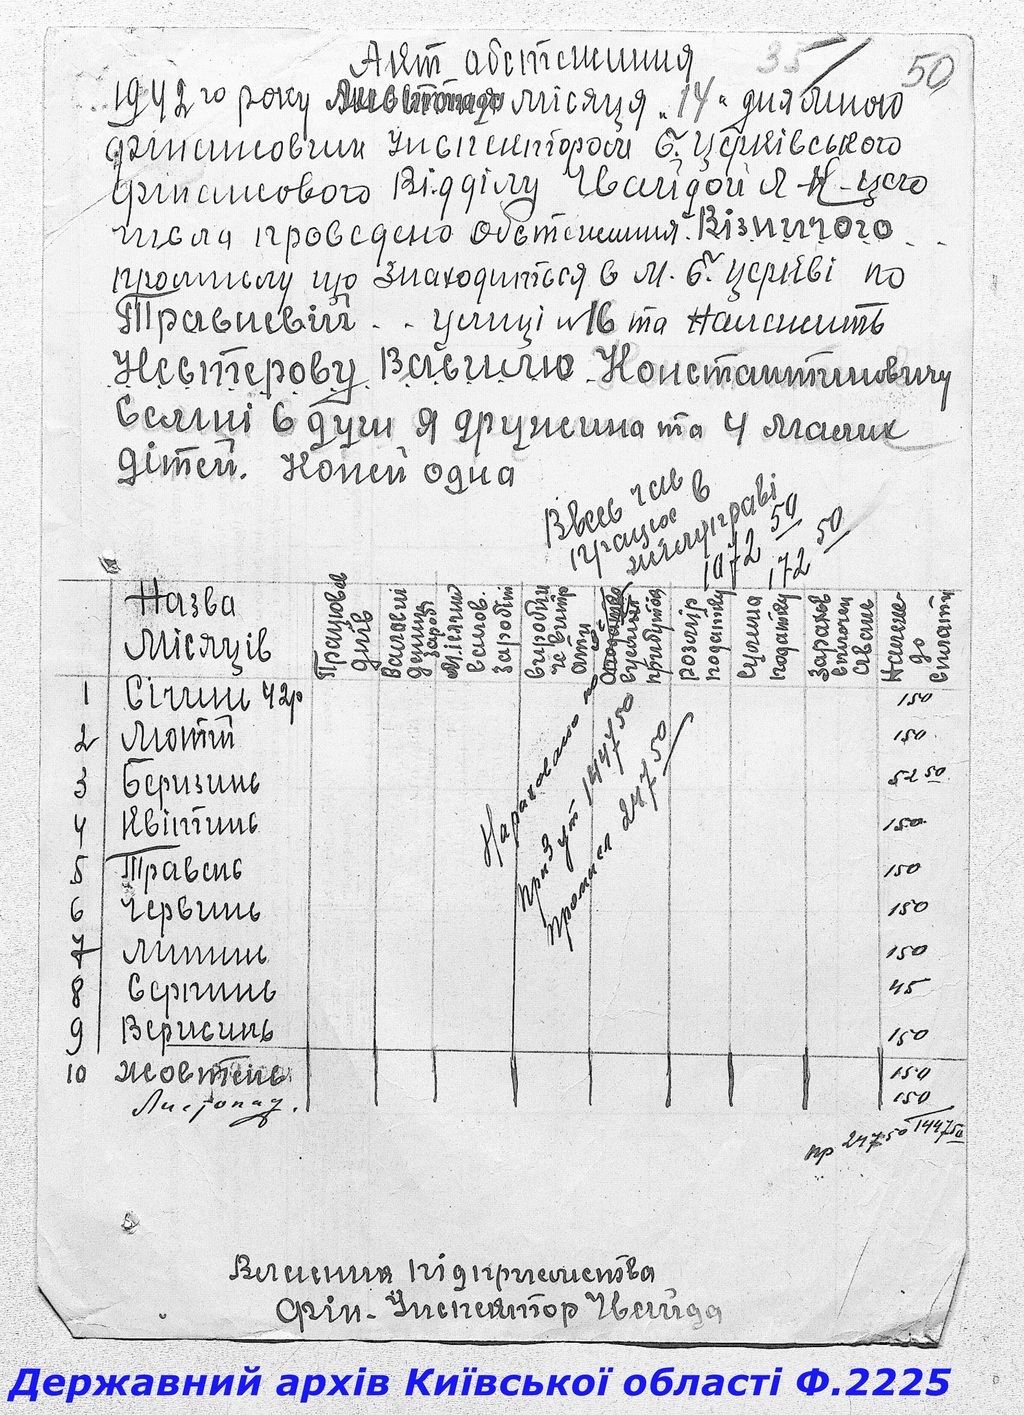 Акт обстеження
35/ 50
1942го року Листопада місяця „14" дня мною
фінансовим Инспектором Б. Церківського
фінансового Відділу Чвайдой Я Н-цого
числа проведено обстеження Візничого
промислу що знаходиться в м. Б. Церкві по
Травневій улиці №16 та належить
Нестерову Василю Константиновичу
Семні 6 душ я дружина та 4 малих
дітей. Коней одна
Ввесь час
працює в
50 50
1072 172
Назва Місяців
Працював днів
Місячн валов. заробіт
розмір податку
сумма податку
Належе до сплати
1 Січинь 42р 150
2 Лютт 150
3 Беризинь 52 50
4 Квітинь 150
5 Травень 150
6 Червинь 150
7 Липинь 150
8 Серпинь 45
9 Верисинь 150
10 жовтень 150
Листопад. 150
Нараховано по
при 3 ут 1447 50
промисл 247 50
пр 247 50 1447 50
Власник підприємства
Фін- Инспектор Чвайда
Державний архів Київської області Ф.2225